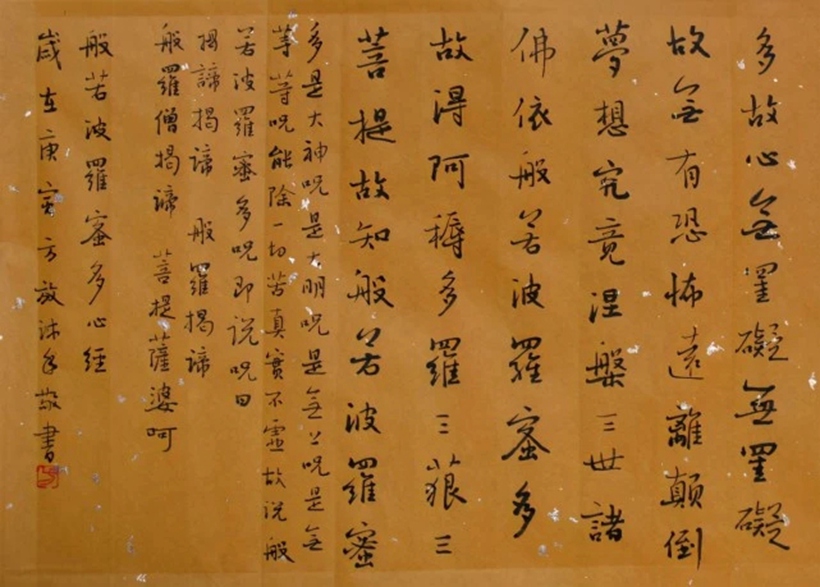 多故心無罣礙無罣礙
故無有恐怖遠離顛倒
夢想究竟涅槃三世諸
佛依般若波羅蜜多
故得阿耨多羅三藐三
菩提故知般若波羅蜜
多是大神呪是大明呪是無上呪是無
等等呪能除一切苦真實不虛故説般
若波羅蜜多呪即説呪曰
揭諦揭諦 般羅揭諦
般羅僧揭諦 菩提薩婆呵
般若波羅蜜多心經
歲在庚寅方放沐手敬書